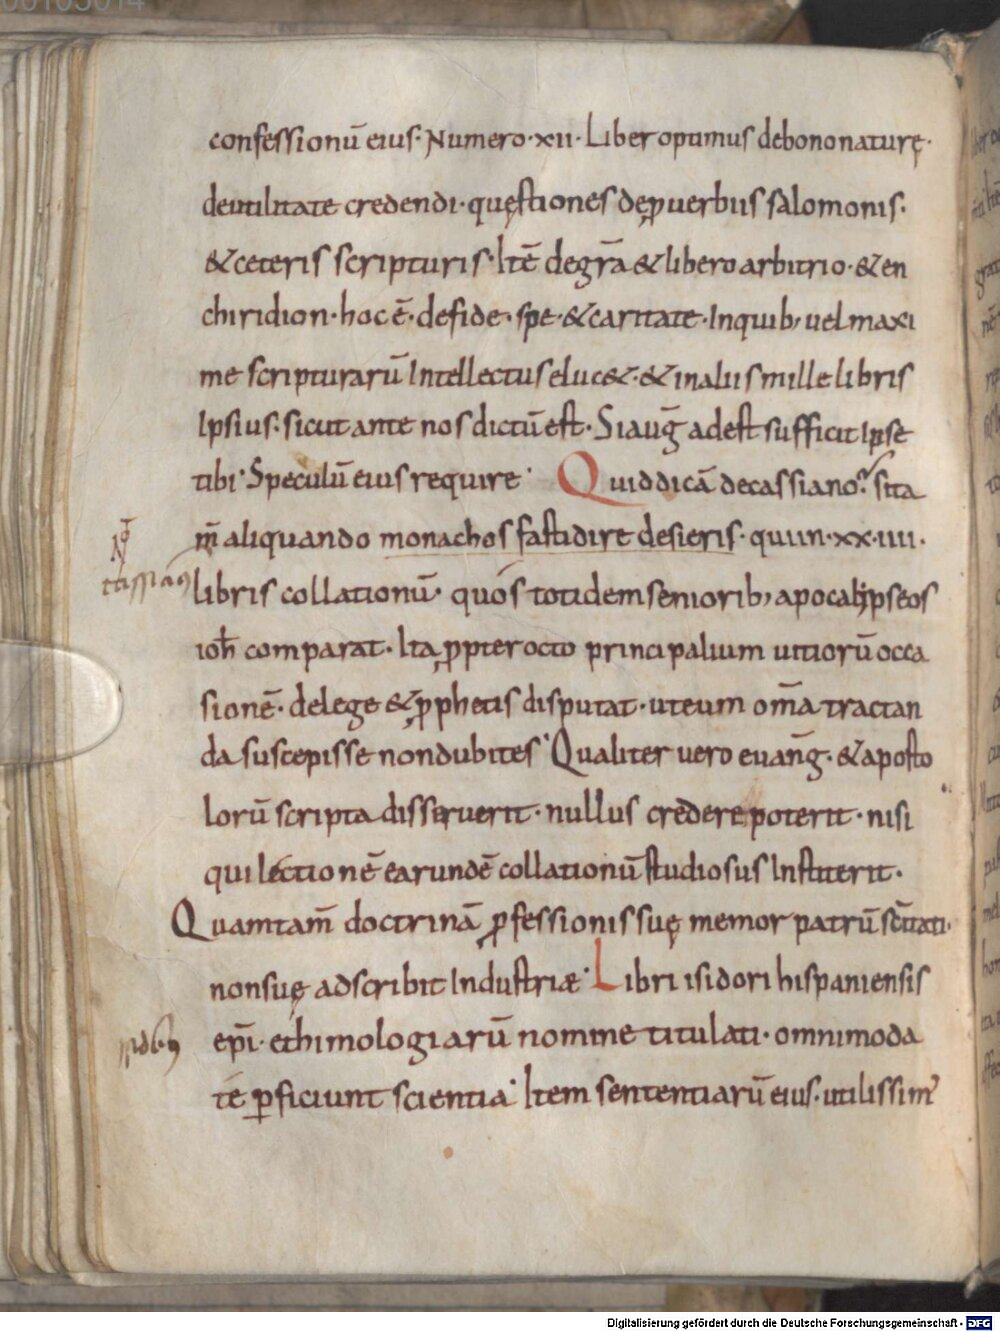 00105014
confessionū eius· Numero·xii· Liber optimus debono naturę·
deutilitate credendi· quęstiones deꝓuerbiis salomonis·
&ceteris scripturis· Itē degr̄a &libero arbitrio· &en
chiridion· hoc ē· defide· spe· &caritate· Inquib; uel maxi
me scripturarū Intellectus eluc&· &inaliis mille libris
Ipsius· sicut ante nos dictū est· Siauḡ adest sufficit Ipse
tibi· Speculū eius require· Quid dicā decassiano? sita
m̄ aliquando monachos fastidire desieris· quiin·xx·iiii·
libris collationū· quos totidem seniorib; apocalypseos
ioh̄ comparat· Ita ꝓpter octo principalium uitiorū occa
sionē· delege &ꝓphetis disputat· uteum om̄a tractan
da suscepisse non dubites· Qualiter uero euanḡ· &aposto
lorū scripta disseruerit· nullus credere poterit· nisi
qui lectionē earundē collationū studiosus Institerit·
Quamtam̄ doctrinā ꝓfessionis suę memor patrū sc̄itati·
non suę adscribit Industriæ· Libri isidori hispaniensis
ep̄i· ethimologiarū nomine titulati· omnimoda
té ꝑficiunt scientia· Item sententiarū eius· utilissim᾽
Digitalisierung gefördert durch die Deutsche Forschungsgemeinschaft - DFG